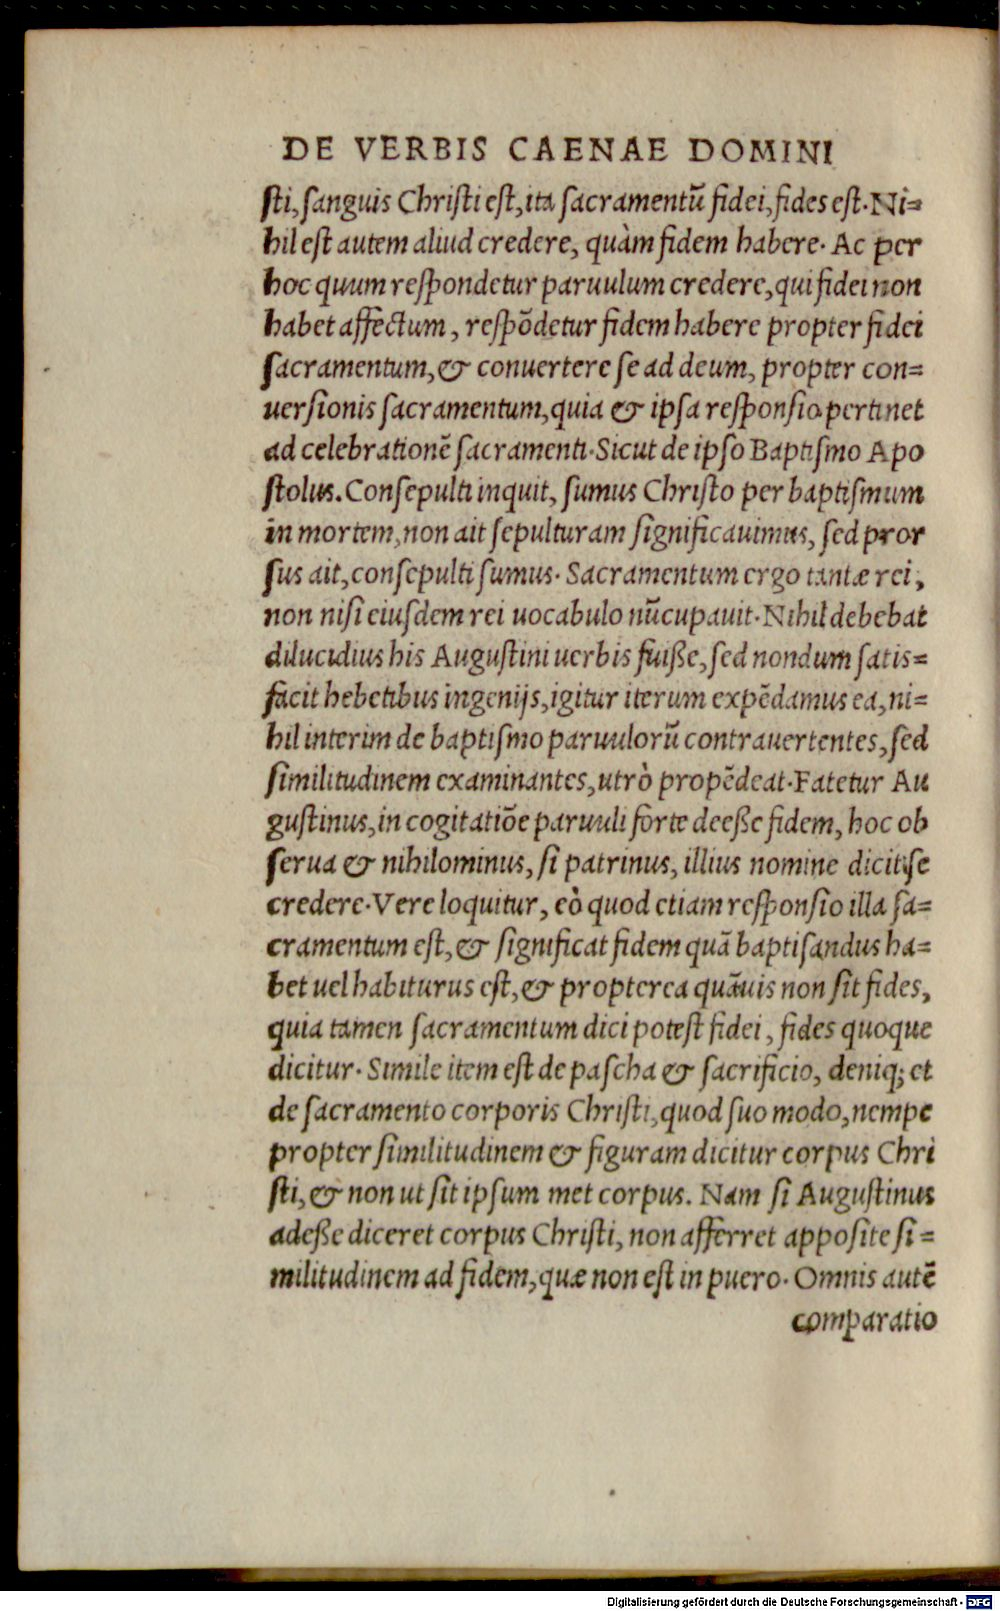 DE VERBIS CAENAE DOMINI
sti, sanguis Christi est, ita sacramentũ fidei, fides est. Ni=
hil est autem aliud credere, quàm fidem habere. Ac per
hoc quum respondetur paruulum credere, qui fidei non
habet affectum, respõdetur fidem habere propter fidei
sacramentum, & conuertere se ad deum, propter con=
uersionis sacramentum, quia & ipsa responsio pertinet
ad celebrationẽ sacramenti. Sicut de ipso Baptismo Apo
stolus. Consepulti inquit, sumus Christo per baptismum
in mortem, non ait sepulturam significauimus, sed pror
sus ait, consepulti sumus. Sacramentum ergo tantæ rei,
non nisi eiusdem rei uocabulo nũcupauit. Nihil debebat
dilucidius his Augustini uerbis fuiße, sed nondum satis=
facit hebetibus ingenijs, igitur iterum expẽdamus ea, ni=
hil interim de baptismo paruulorũ contrauertentes, sed
similitudinem examinantes, utrò propẽdeat. Fatetur Au
gustinus, in cogitatiõe paruuli forte deeße fidem, hoc ob
serua & nihilominus, si patrinus, illius nomine dicit, se
credere. Vere loquitur, eò quod etiam responsio illa sa=
cramentum est, & significat fidem quã baptisandus ha=
bet uel habiturus est, & propterea quãuis non sit fides,
quia tamen sacramentum dici potest fidei, fides quoque
dicitur. Simile item est de pascha & sacrificio, deniq; et
de sacramento corporis Christi, quod suo modo, nempe
propter similitudinem & figuram dicitur corpus Chri
sti, & non ut sit ipsum met corpus. Nam si Augustinus
adeße diceret corpus Christi, non afferret apposite si=
militudinem ad fidem, quæ non est in puero. Omnis autẽ
comparatio
Digitalisierung gefördert durch die Deutsche Forschungsgemeinschaft - DFG